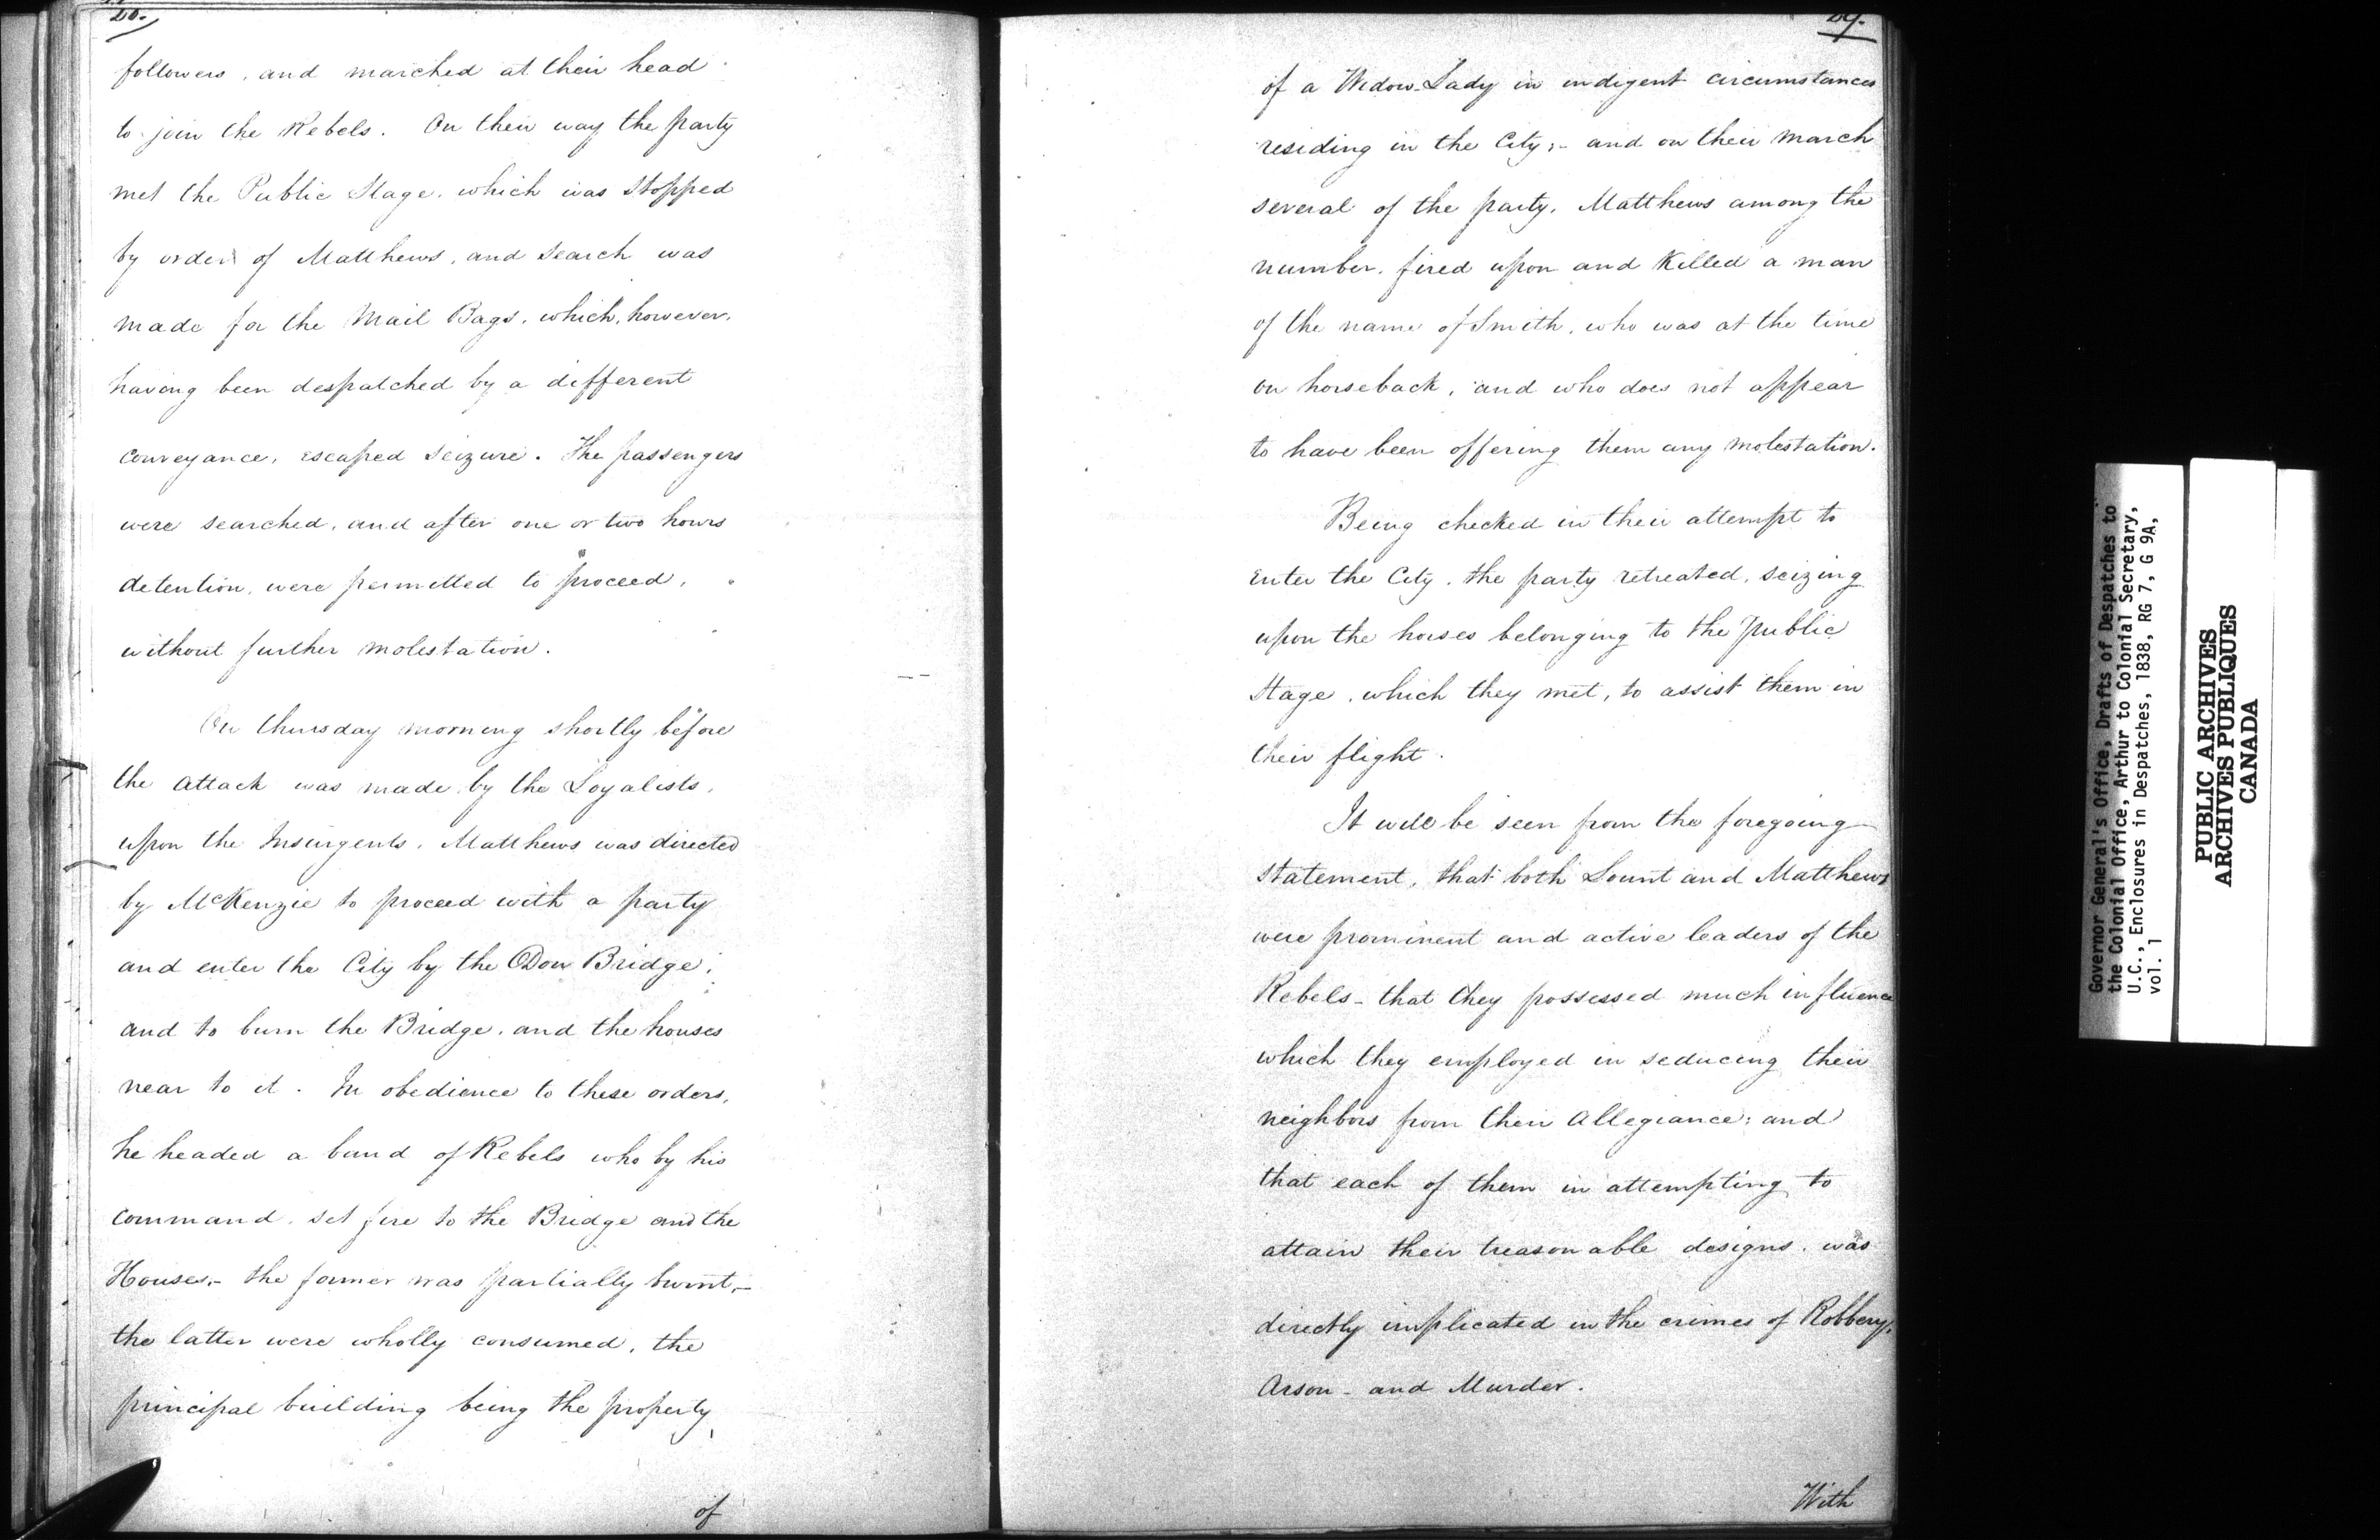 followers, and marched at their head
to join the Rebels. On their way the party
met the Public Stage, which was stopped
by order of Matthews, and search was
made for the Mail Bags, which, however,
having been despatched by a different
conveyance, escaped seizure. The passengers
were searched, and after one or two hours
detention, were permitted to proceed,
without further molestation.
On thursday morning shortly before
the attack was made by the Loyalists,
upon the Insurgents, Matthews was directed
by McKenzie to proceed with a party
and enter the City by the Don Bridge;
and to burn the Bridge, and the houses
near to it. In obedience to these orders,
he headed a band of Rebels who by his
command, set fire to the Bridge and the
Houses,- the former was partially burnt,-
the latter were wholly consumed, the
principal building being the property
of
29.
of a Widow-Lady in indigent circumstances
residing in the City;- and on their march
several of the party, Matthews among the
number, fired upon and Killed a man
of the name of Smith, who was at the time
on horseback, and who does not appear
to have been offering them any molestation.
Being checked in their attempt to
enter the City, the party retreated, seizing
upon the horses belonging to the Public
Stage, which they met, to assist them in
their flight.
It will be seen from the foregoing
statement, that both Lount and Matthews
were prominent and active leaders of the
Rebels- that they possessed much influence
which they employed in seducing their
neighbors from their allegiance; and
that each of them in attempting to
attain their treasonable designs, was
directly implicated in the crimes of Robbery,
Arson- and Murder.
With
Governor General's Office, Drafts of Despatches to
the Colonial Office, Arthur to Colonial Secretary,
U.C., Enclosures in Despatches, 1838, RG 7, G 9A,
vol. 1
PUBLIC ARCHIVES
ARCHIVES PUBLIQUES
CANADA